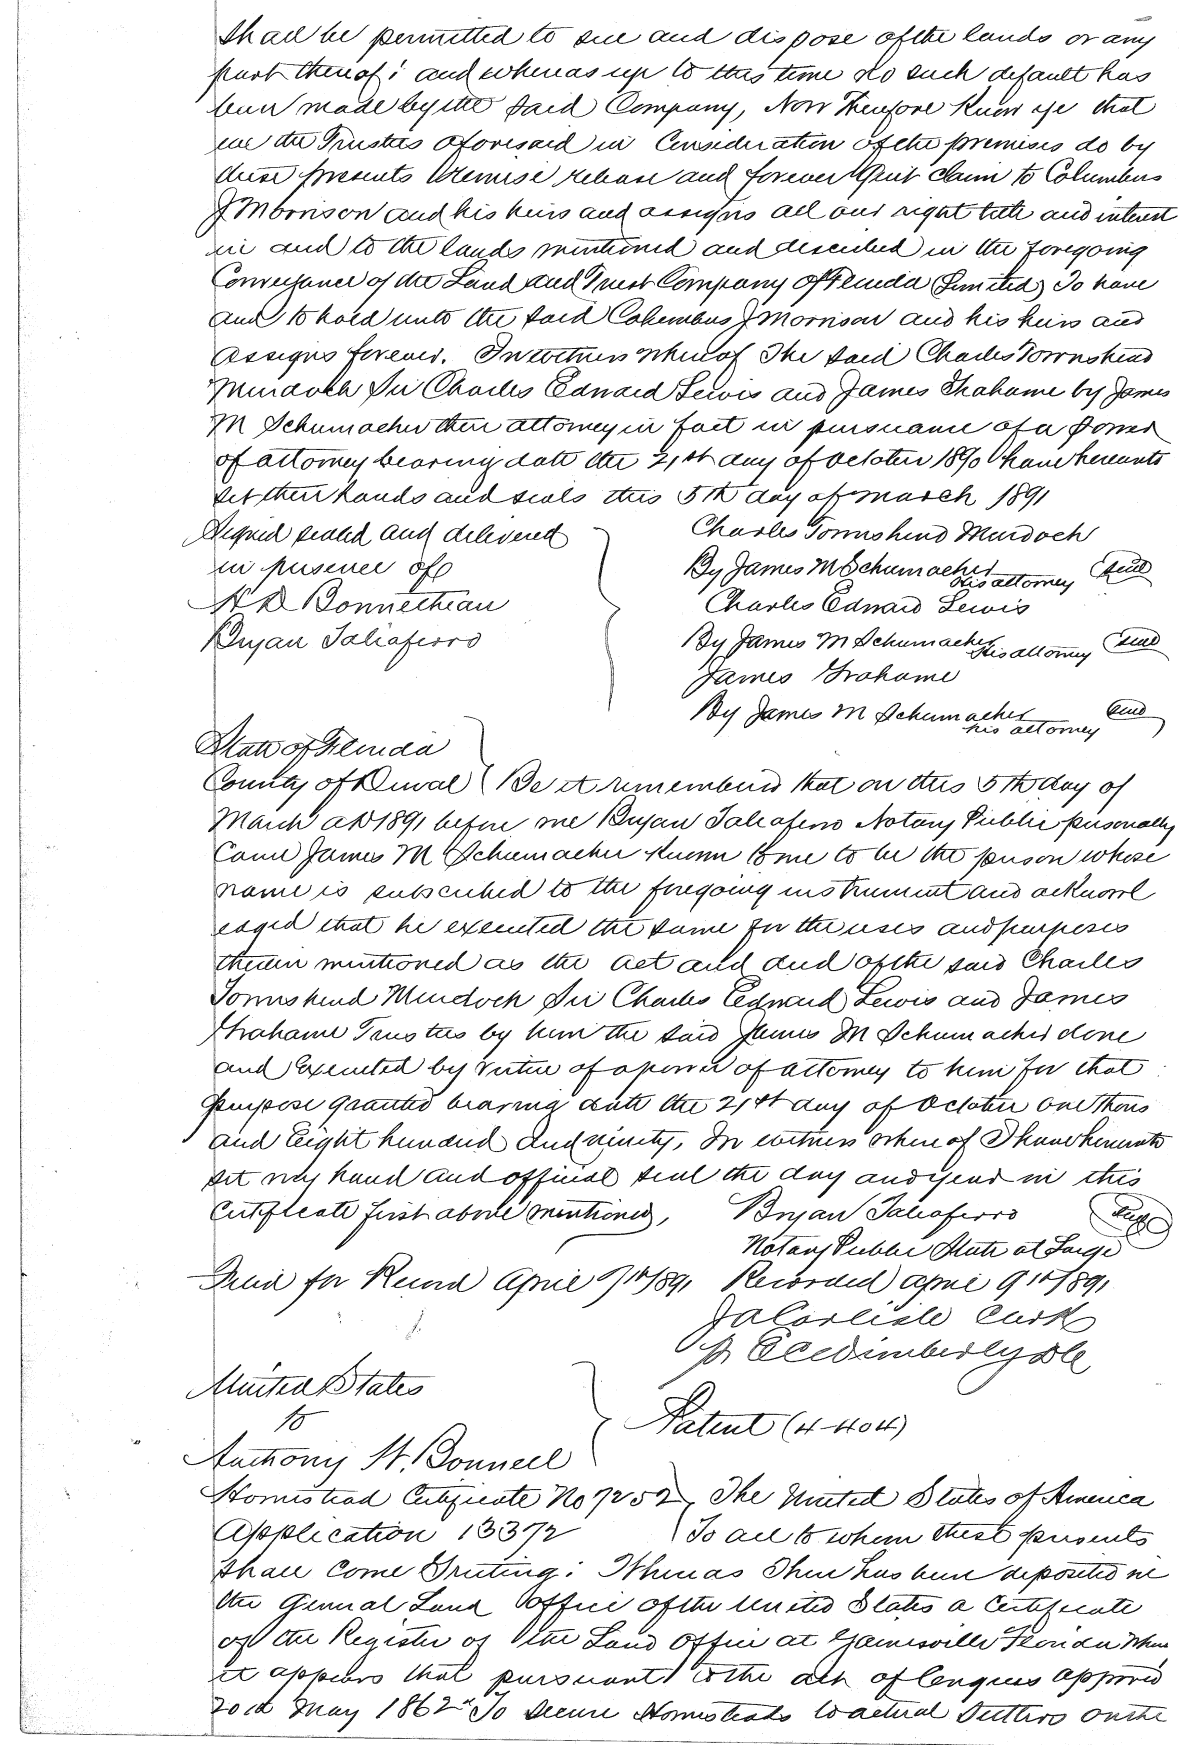 shall be permitted to sue and dispose of the lands or any
part thereof; and whereas up to this time no such default has
been made by the said Company, Now Therefore Know ye that
we the Trustees aforesaid in Consideration of the premises do by
these presents remise release and forever Quit claim to Columbus
J Morrison and his heirs and assigns all our right title and interest
in and to the lands mentioned and described in the foregoing
Conveyance of the Land and Trust Company of Florida (Limited) To have
and to hold unto the said Columbus J Morrison and his heirs and
assigns forever. In witness whereof The said Charles Townshend
Murdoch Sir Charles Edward Lewis and James Grahame by James
M Schumacher their attorney in fact in pursuance of a Power
of attorney bearing date the 21st day of October 1890 have hereunto
set their hands and seals this 5th day of March 1891
Signed sealed and delivered
in presence of
H D Bonnetheau
Bryan Taliaferro
Charles Townshend Murdoch
By James M Schumacher his attorney (seal)
Charles Edward Lewis
By James M Schumacher his attorney (seal)
James Grahame
By James M Schumacher his attorney (seal)
State of Florida
County of Duval } Be it remembered that on this 5th day of
March AD 1891 before me Bryan Taliaferro Notary Public personally
Came James M Schumacher known to me to be the person whose
name is subscribed to the foregoing instrument and acknowl
edged that he executed the same for the uses and purposes
therein mentioned as the act and deed of the said Charles
Townshend Murdoch Sir Charles Edward Lewis and James
Grahame Trustees by him the said James M Schumacher done
and Executed by virtue of a power of attorney to him for that
purpose granted bearing date the 21st day of October one thous
and Eight hundred and ninety. In witness whereof I have hereunto
set my hand and official seal the day and year in this
Certificate first above mentioned, Bryan Taliaferro (seal)
Notary Public State at Large
Filed for Record April 9th 1891 Recorded april 9th 1891
J A Carlisle Clerk
pr E C Wimberly DC
United States
to
Anthony H. Bonnell
Patent (4-404)
Homestead Certificate No 7252 } The United States of America
Application 13372 To all to whom these presents
shall come Greeting: Whereas There has been deposited in
the General Land Office of the United States a Certificate
of the Register of the Land Office at Gainesville Florida Where
it appears that pursuant to the act of Congress approved
20th May 1862 "To secure Homesteads to actual Settlers on the